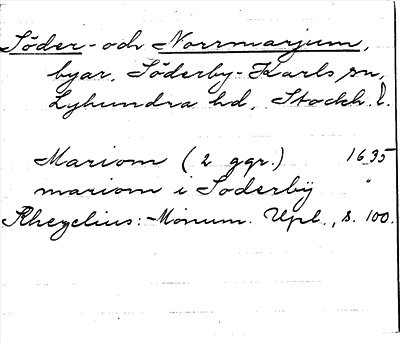 Söder- och Norrmarjum,
byar, Söderby-Karls sn,
Lyhundra hd, Stockh. l.
Mariom (2 ggr.) 1635
mariom i Soderbÿ "
Rhezelius: Monum. Upl., s. 100.